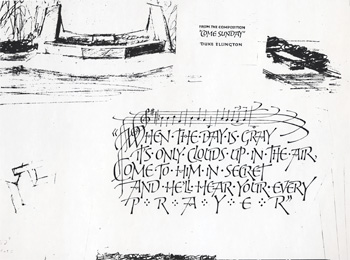 FROM THE COMPOSITION
"COME SUNDAY"
DUKE ELLINGTON
"WHEN·THE·DAY·IS·GRAY
IT'S·ONLY·CLOUDS·UP·IN·THE·AIR,
COME·TO·HIM·IN·SECRET
AND·HE'LL·HEAR·YOUR·EVERY
P·R·A·Y·E·R"